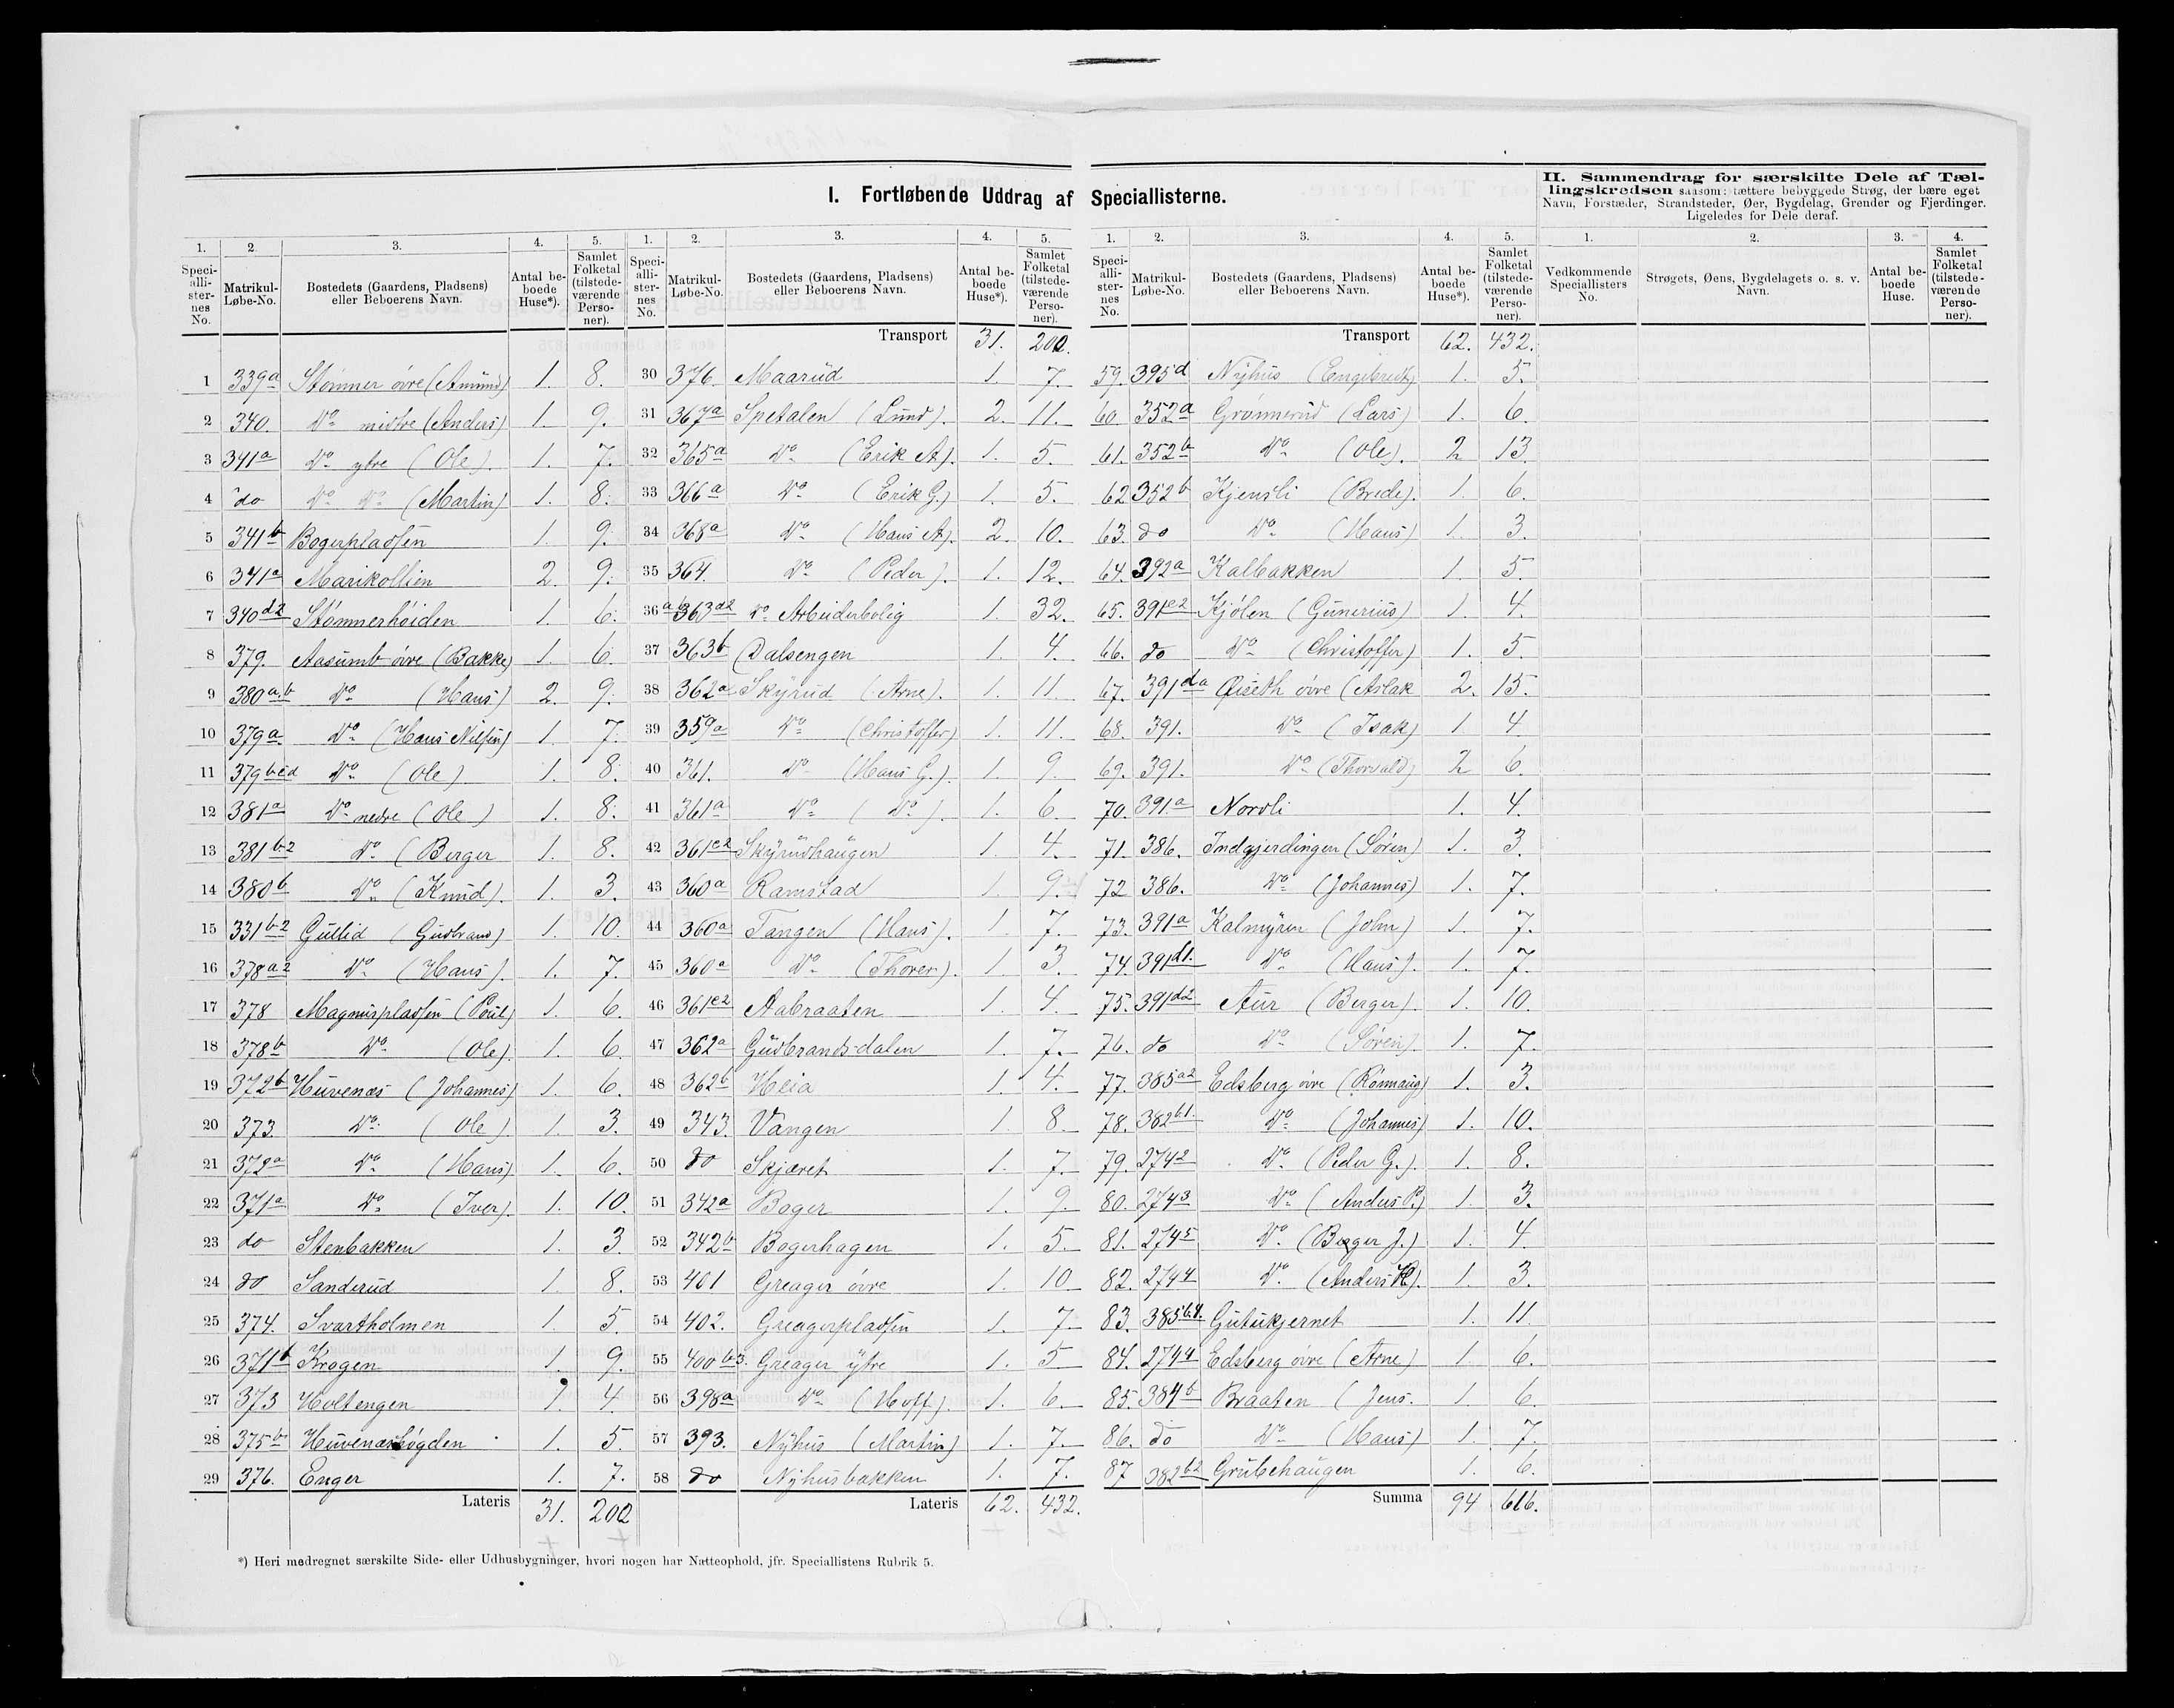 I. Fortløbende Uddrag af Speciallisterne.
1. 2. 3. 4. 5.
Speci-alli-ster-nes No. Matrikul-Løbe-No. Bostedets (Gaardens, Pladsens) eller Beboerens Navn. Antal be-boede Huse*). Samlet Folketal (tilstede-værende Perso-ner).
1 339a Stømner övre (Amund) 1. 8.
2 340. Do midtre (Anders) 1. 9.
3 341a Do ytre (Ole). 1. 7.
4 do Do Do (Martin) 1. 8.
5 341b Bogerpladsen 1. 9.
6 341a Marikollien 2. 9.
7 340d2 Stømnerhöiden 1. 6.
8 379. Aasumb övre (Bakke) 1. 6.
9 380a.b Do (Hans) 2. 9.
10 379a. Do (Hans Nilsen) 1. 7.
11 379bcd Do (Ole) 1. 8.
12 381a Do nedre (Ole) 1. 8.
13 381b2 Do (Berger 1. 8.
14 380b Do (Knud). 1. 3.
15 331b2 Gullid (Gudbrand) 1. 10.
16 378a2 Do (Hans). 1. 7.
17 378 Magnuspladsen (Poul) 1. 6.
18 378b Do (Ole). 1. 6.
19 372b Huvenæs (Johannes) 1. 6.
20 373. Do (Ole). 1. 3.
21 372a Do (Hans) 1. 6.
22 371a Do (Iver). 1. 10.
23 do Stenbakken 1. 3.
24 do Sanderud 1. 8.
25 374. Svartholmen 1. 5.
26 371b Krogen 1. 9.
27 373 Holtengen 1. 4.
28 375b Huvenæshögden 1. 5.
29 376. Enger 1. 7.
Lateris 31. 202
1. 2. 3. 4. 5.
Speci-alli-ster-nes No. Matrikul-Løbe-No. Bostedets (Gaardens, Pladsens) eller Beboerens Navn. Antal be-boede Huse*). Samlet Folketal (tilstede-værende Perso-ner).
Transport 31. 202.
30 376. Maarud 1. 7.
31 367a Spetalen (Lund). 2. 11.
32 365a Do (Erik A). 1. 5.
33 366a Do (Erik G.) 1. 5.
34 368a Do (Hans A). 2. 10.
35 364. Do (Peder). 1. 12.
36 ab363d2 Do Arbeiderbolig 1. 32.
37 363b Dalsengen 1. 4.
38 362a Skyrud (Arne). 1. 11.
39 359a Do (Christoffer) 1. 11.
40 361. Do (Hans G.). 1. 9.
41 361a Do (Do). 1. 6.
42 361c2 Skyrudhaugen 1. 4.
43 360a Ramstad 1. 9.
44 360a Tangen (Hans). 1. 7.
45 360a Do (Thorer). 1. 3.
46 361c2 Aabraaten 1. 4.
47 362a Gudbrandsdalen 1. 7.
48 362b Heia 1. 4.
49 343. Vangen 1. 8.
50 do Skjæret 1. 7.
51 342a Boger 1. 9.
52 342b Bogerhagen 1. 5.
53 401 Greager övre 1. 10
54 402. Greagerpladsen 1. 7
55 400b3. Greager ytre 1. 5
56 398a Do (Hoff). 1. 6.
57 393. Nyhus (Martin) 1. 7.
58 do Nyhusbakken 1. 7.
Lateris 62. 432.
1. 2. 3. 4. 5.
Speci-alli-ster-nes No. Matrikul-Løbe-No. Bostedets (Gaardens, Pladsens) eller Beboerens Navn. Antal be-boede Huse*). Samlet Folketal (tilstede-værende Perso-ner).
Transport 62. 432.
59. 395d Nyhus (Engebredt) 1. 5.
60. 352a Grønnerud (Lars) 1. 6.
61. 352b Do (Ole). 2 13.
62 352b Kjensli (Brede). 1. 6.
63. do Do (Hans) 1. 3.
64. 392a Kalbakken 1. 5.
65. 391e2 Kjölen (Gunerius) 1. 4.
66. do Do (Christoffer) 1. 5.
67. 391da Øiseth övre (Aslak 2. 15.
68. 391. Do (Isak) 1. 4.
69. 391. Do (Thorvald) 2 6.
70. 391a Nordli 1. 4.
71. 386. Indgjerdingen (Sören) 1. 3.
72 386. Do (Johannes) 1. 7.
73. 391a Kalmyren (John) 1. 7.
74. 391d1. Do (Hans). 1. 7.
75. 391d2 Aur (Berger). 1. 10.
76. do Do (Sören). 1. 7.
77. 385a2 Edsberg övre (Rønnaug) 1. 3.
78. 382b1. Do (Johannes) 1. 10.
79. 2742 Do (Peder G.). 1. 8.
80. 2743 Do (Anders P.) 1. 3.
81. 2745 Do (Berger J.) 1. 4.
82. 2744 Do (Anders H). 1. 3.
83. 385b4. Gutukjernet 1. 11.
84. 2744 Edsberg övre (Arne) 1. 6.
85. 384b Braaten (Jens. 1. 6.
86. do Do (Hans) 1. 7.
87 382b2 Grubehaugen 1. 6.
Summa 94 616.
II. Sammendrag for særskilte Dele af Tæl-
lingskredsen saasom: tættere bebyggede Strøg, der bære eget
Navn, Forstæder, Strandsteder, Øer, Bygdelag, Grender og Fjerdinger.
Ligeledes for Dele deraf.
1. 2. 3. 4.
Vedkommende Speciallisters No. Strøgets, Øens, Bygdelagets o. s. v. Navn. Antal be-boede Huse. Samlet Folketal (tilstede-værende Perso-ner).
*) Heri medregnet særskilte Side- eller Udhusbygninger, hvori nogen har Natteophold, jfr. Speciallistens Rubrik 5.